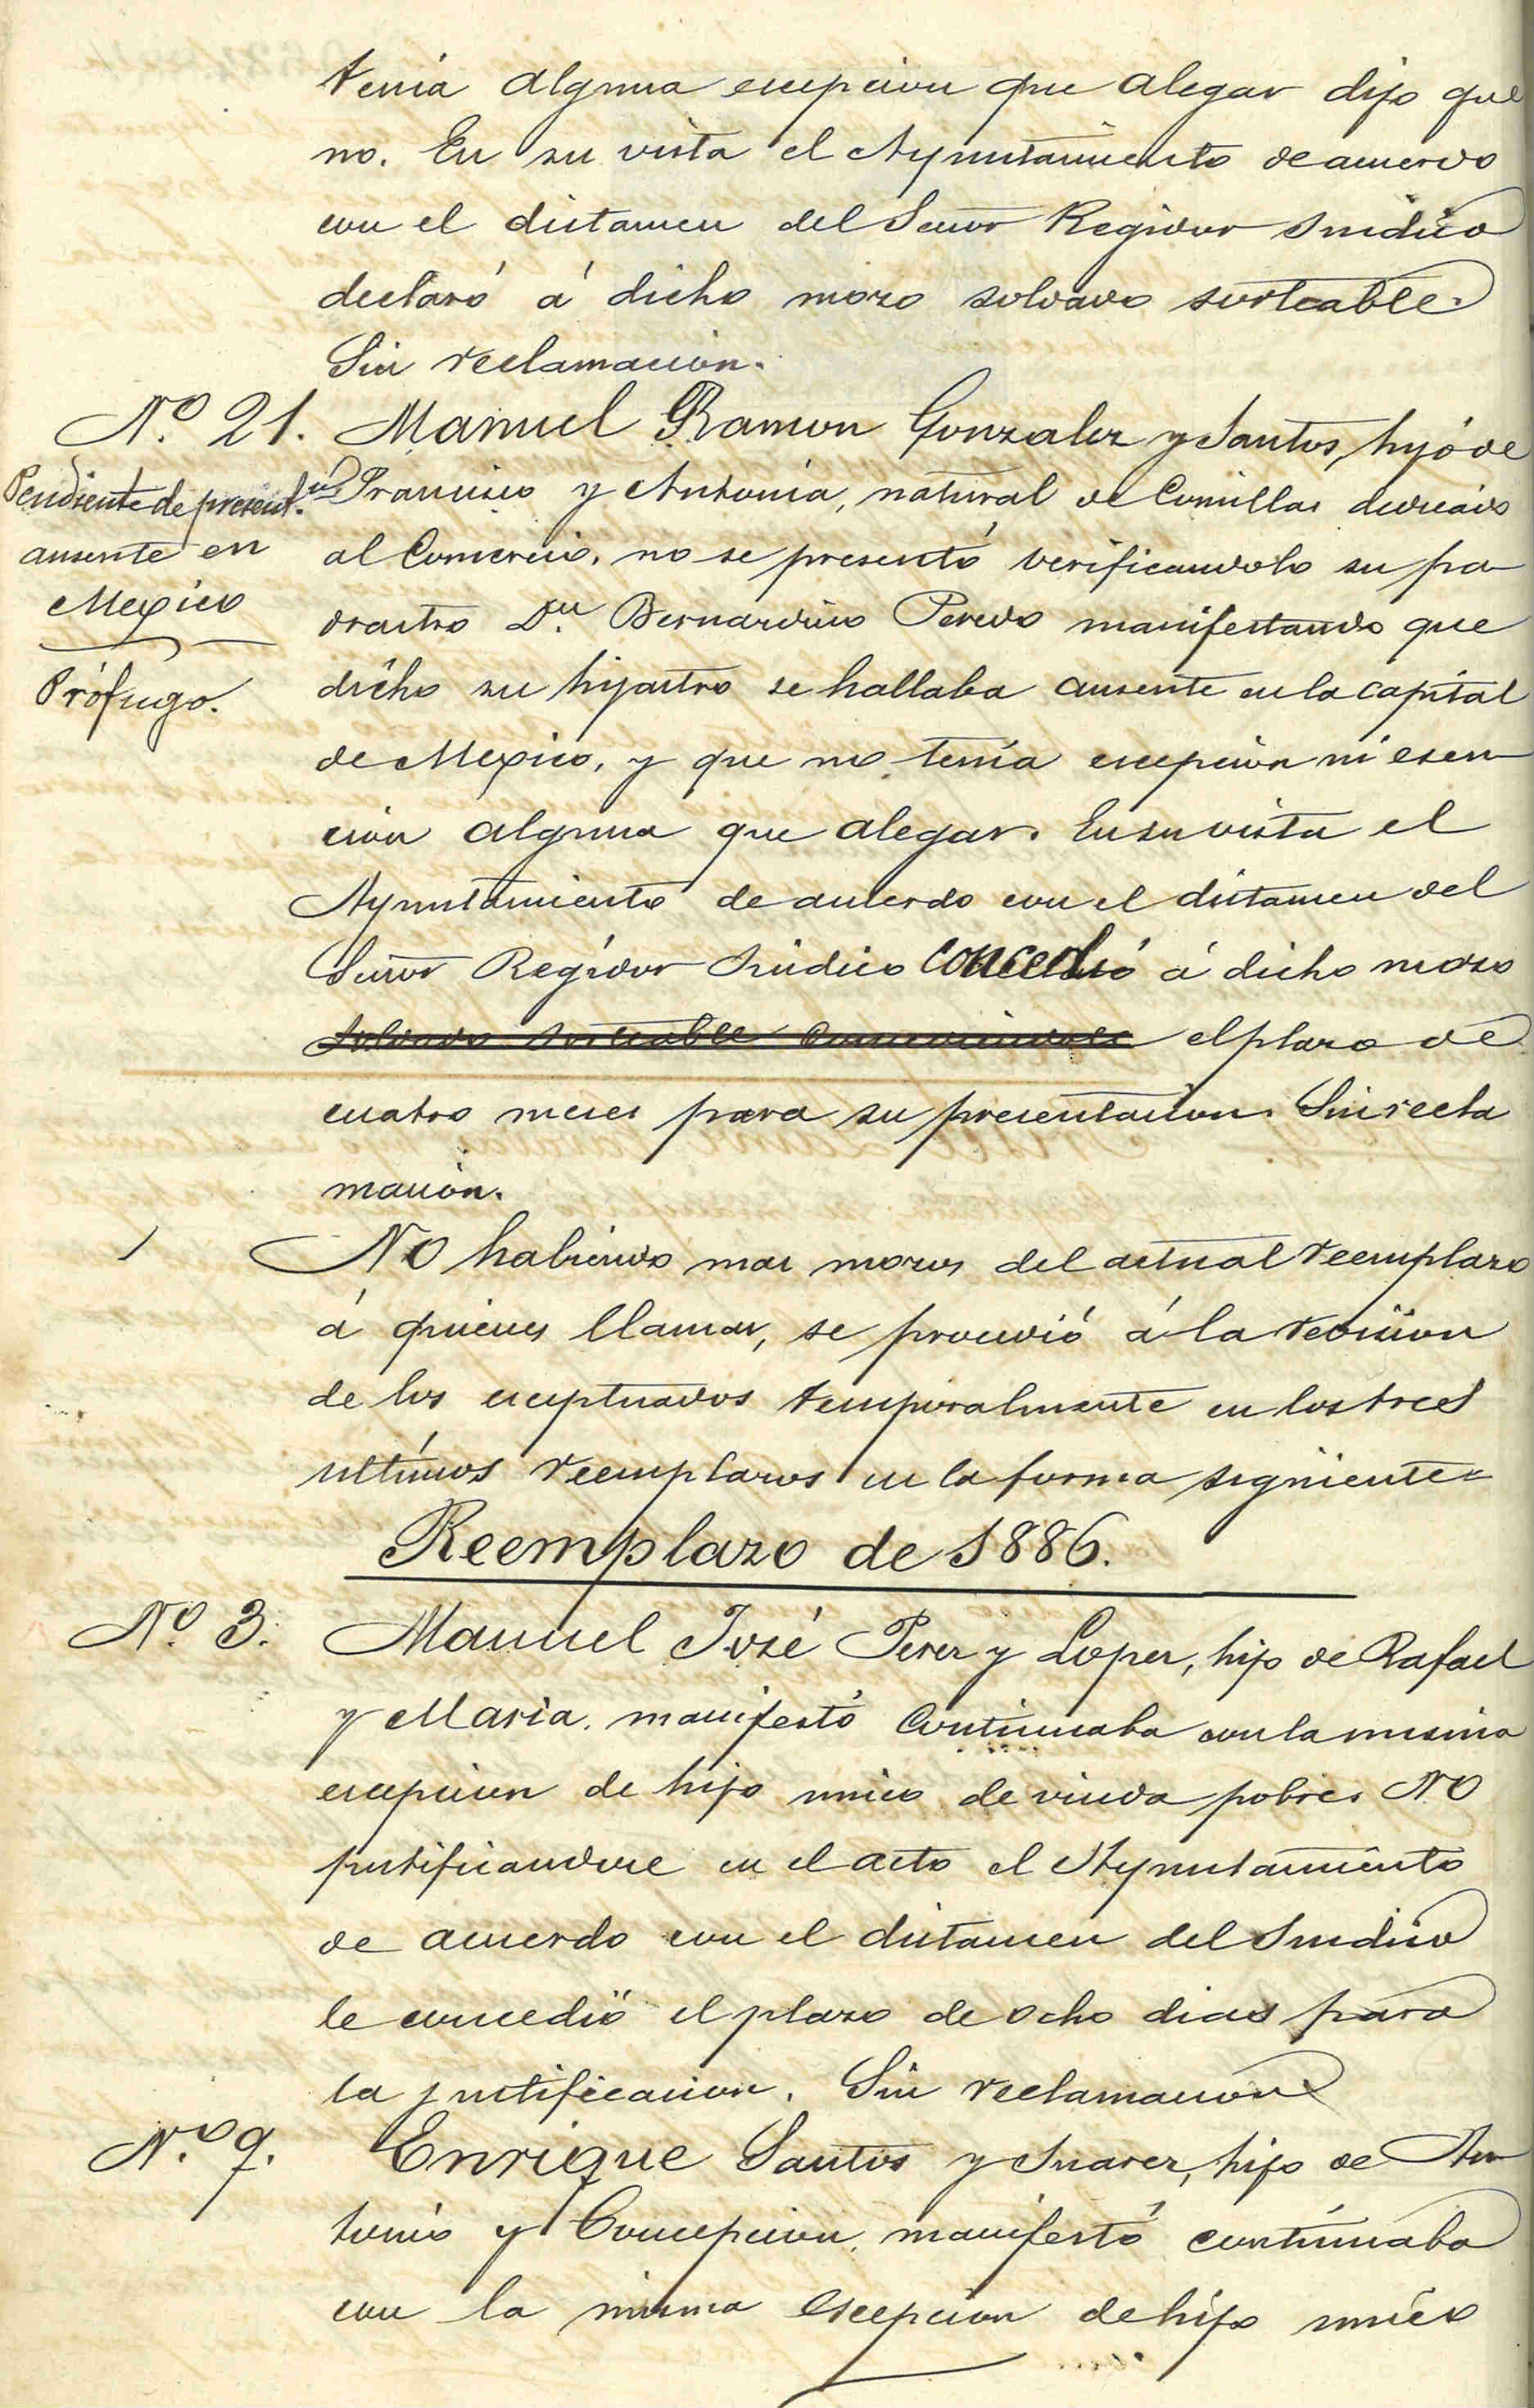 tenia alguna escepcion que alegar dijo que
no. En su vista el Ayuntamiento de acuerdo
con el dictamen del Señor Regidor Sindico
declaró á dicho mozo soldado sorteable.
Sin reclamacion.
Nº 21. Manuel Ramon Gonzalez y Santos, hijo de
Pendiente de present.on Francisco y Antonia, natural de Comillas dedicado
ausente en al Comercio, no se presentó verificandolo su pa
Mexico drastro Dn. Bernardino Peredo manifestando que
Prófugo. dicho su hijastro se hallaba ausente en la capital
de Mexico, y que no tenía escepcion ni esen
cion alguna que alegar. En su vista el
Ayuntamiento de acuerdo con el dictamen del
Señor Regidor Sindico concedió á dicho mozo
soldado sorteable el plazo de
cuatro meses para su presentacion. Sin recla
macion.
No habiendo mas mozos del actual reemplazo
á quienes llamar, se procedió á la revision
de los esceptuados temporalmente en los tres
ultimos reemplazos en la forma siguiente=
Reemplazo de 1886.
Nº 3. Manuel José Perez y Lopez, hijo de Rafael
y Maria, manifestó continuaba con la misma
escepcion de hijo unico de viuda pobre. No
justificandose en el acto el Ayuntamiento
de acuerdo con el dictamen del Sindico
le concedió el plazo de ocho dias para
la justificacion. Sin reclamacion
N.º 9. Enrique Santos y Suarez, hijo de An
tonio y Concepcion, manifestó continuaba
con la misma escepcion de hijo unico